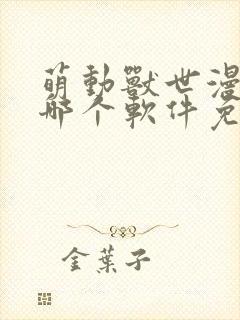 萌動獸世漫
哪个軟件免
金葉子